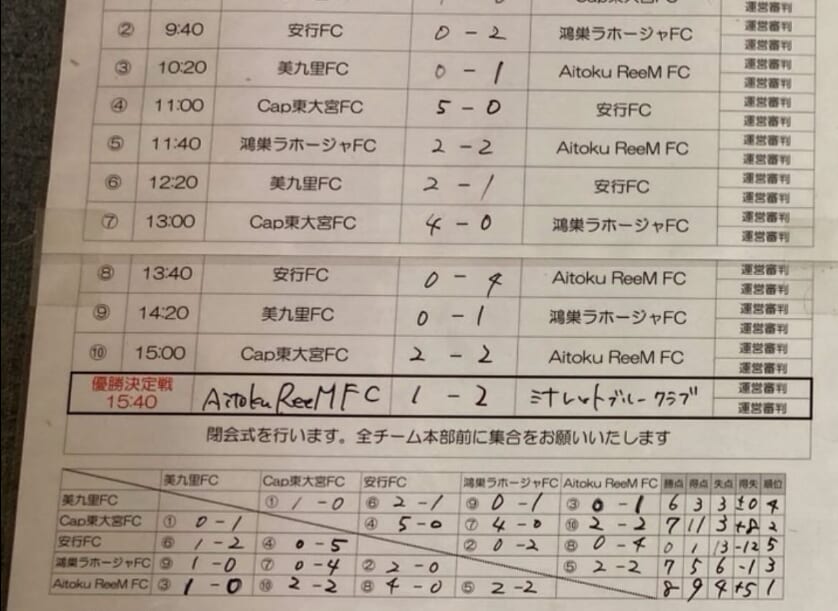 運営審判
② 9:40 安行FC 0 - 2 鴻巣ラホージャFC 運営審判
運営審判
③ 10:20 美九里FC 0 - 1 Aitoku ReeM FC 運営審判
運営審判
④ 11:00 Cap東大宮FC 5 - 0 安行FC 運営審判
運営審判
⑤ 11:40 鴻巣ラホージャFC 2 - 2 Aitoku ReeM FC 運営審判
運営審判
⑥ 12:20 美九里FC 2 - 1 安行FC 運営審判
運営審判
⑦ 13:00 Cap東大宮FC 4 - 0 鴻巣ラホージャFC 運営審判
運営審判
⑧ 13:40 安行FC 0 - 4 Aitoku ReeM FC 運営審判
運営審判
⑨ 14:20 美九里FC 0 - 1 鴻巣ラホージャFC 運営審判
運営審判
⑩ 15:00 Cap東大宮FC 2 - 2 Aitoku ReeM FC 運営審判
運営審判
優勝決定戦 15:40 Aitoku ReeM FC 1 - 2 ミナレットブルークラブ 運営審判
運営審判
閉会式を行います。全チーム本部前に集合をお願いいたします
美九里FC Cap東大宮FC 安行FC 鴻巣ラホージャFC Aitoku ReeM FC 勝点 得点 失点 得失 順位
美九里FC ① 1 - 0 ⑥ 2 - 1 ⑨ 0 - 1 ③ 0 - 1 6 3 3 ±0 4
Cap東大宮FC ① 0 - 1 ④ 5 - 0 ⑦ 4 - 0 ⑩ 2 - 2 7 11 3 +8 2
安行FC ⑥ 1 - 2 ④ 0 - 5 ② 0 - 2 ⑧ 0 - 4 0 1 13 -12 5
鴻巣ラホージャFC ⑨ 1 - 0 ⑦ 0 - 4 ② 2 - 0 ⑤ 2 - 2 7 5 6 -1 3
Aitoku ReeM FC ③ 1 - 0 ⑩ 2 - 2 ⑧ 4 - 0 ⑤ 2 - 2 8 9 4 +5 1